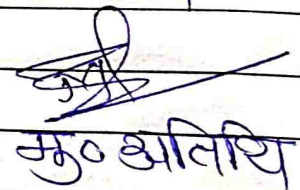 मु० अतिथि